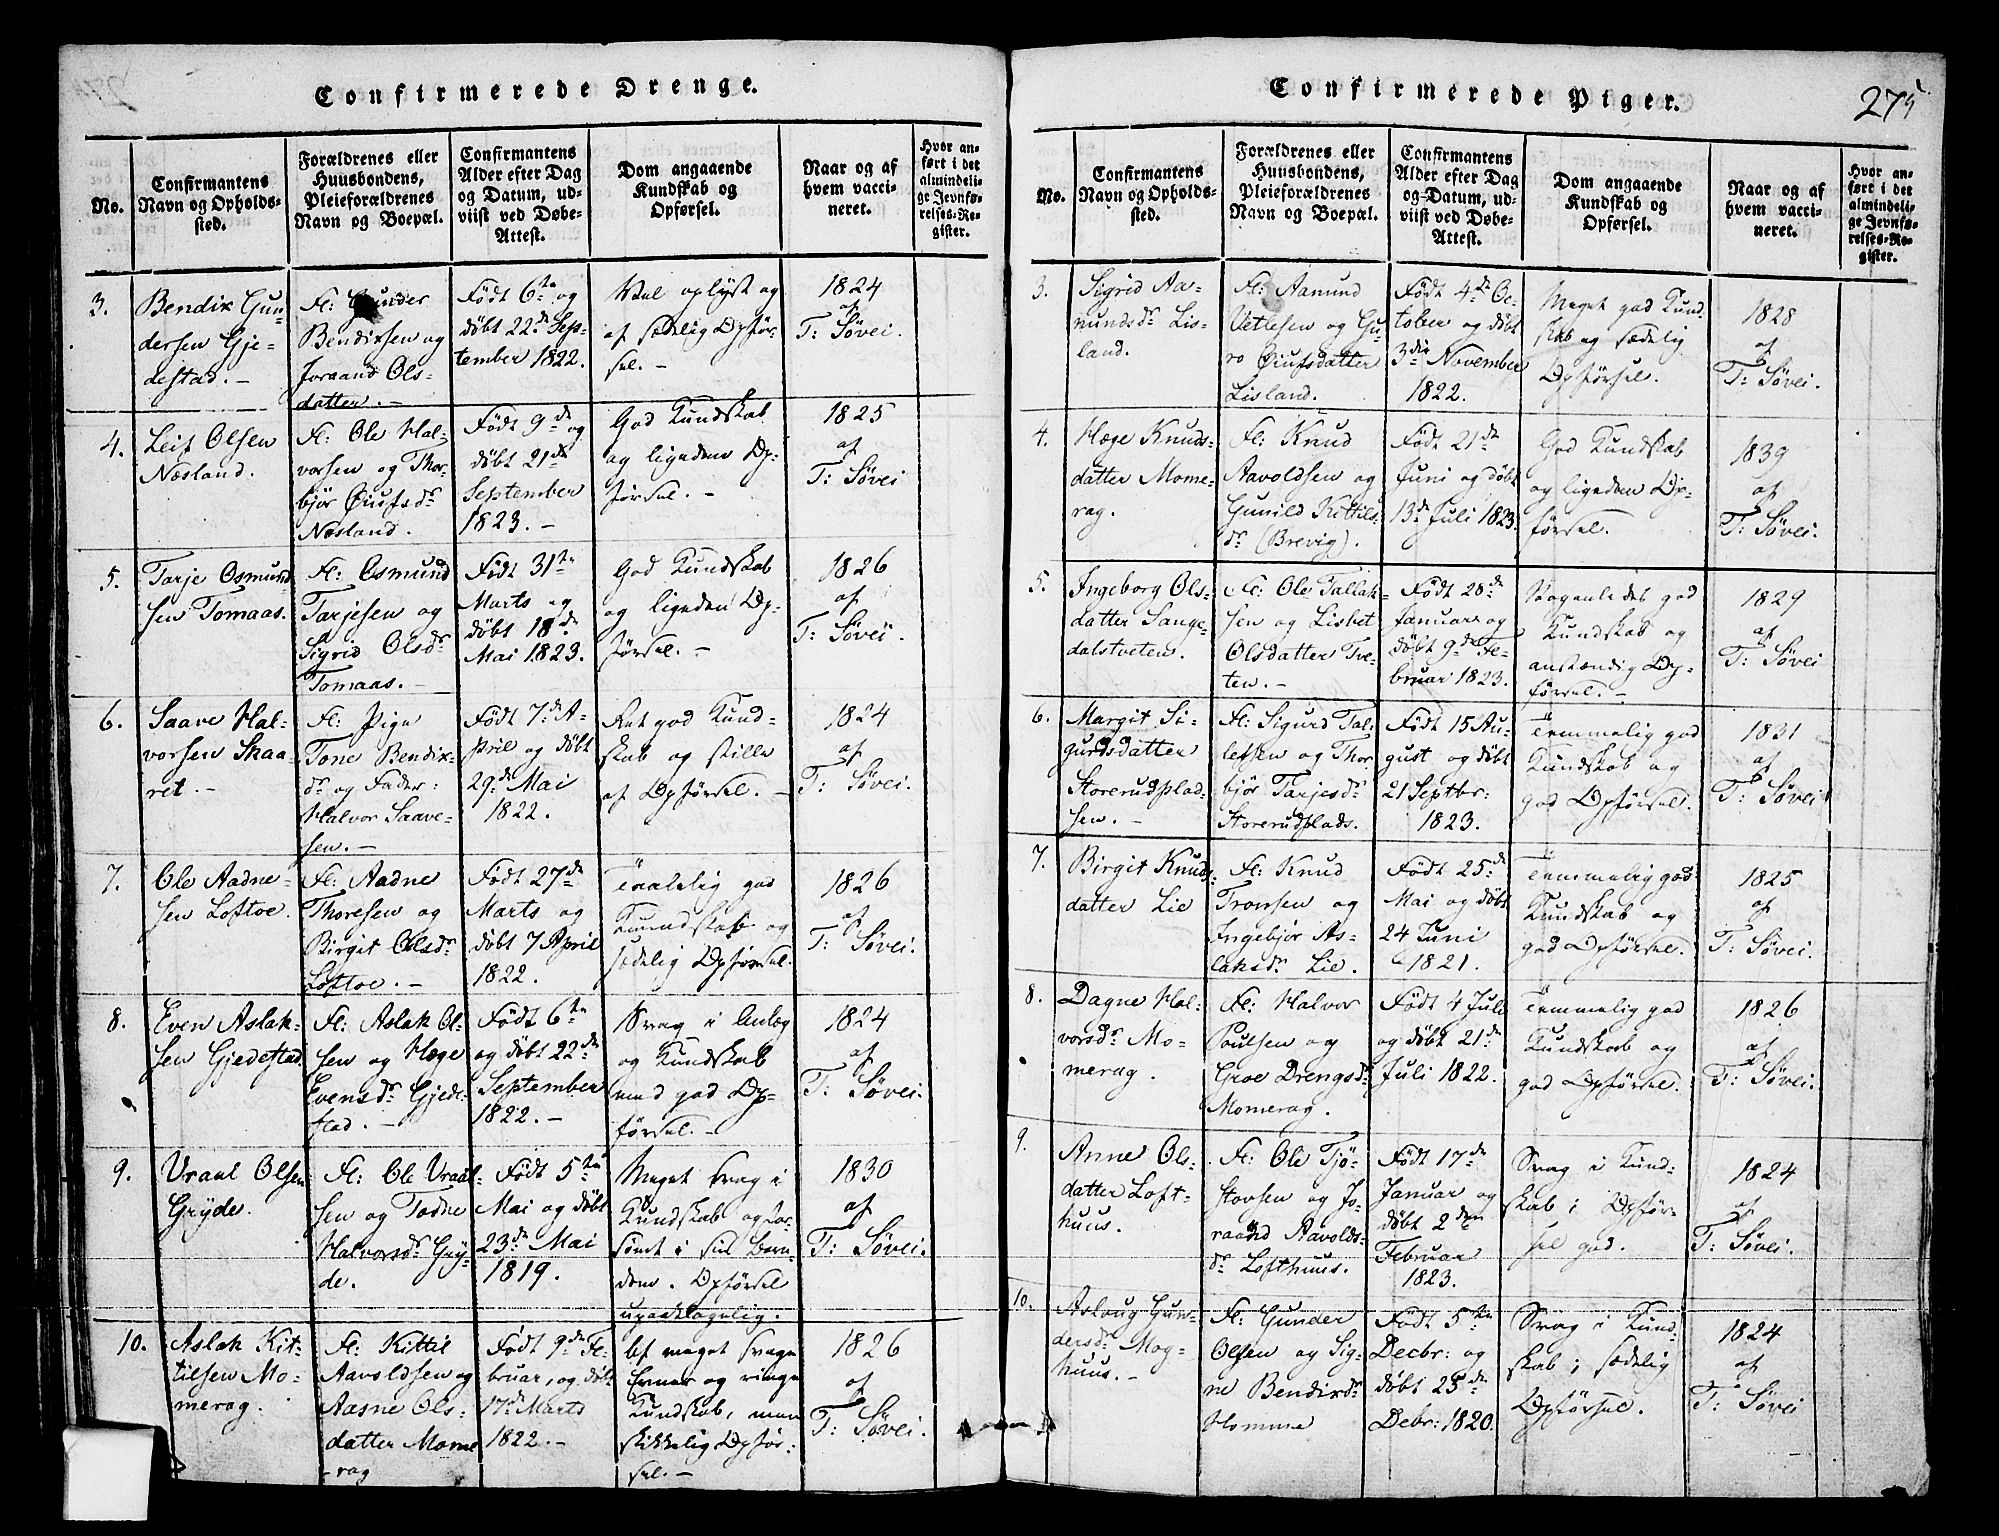 Confirmerede Drenge.
No.
Confirmantens
Navn og Opholds-
sted.
Forældrenes eller
Huusbondens,
Pleieforældrenes
Navn og Boepæl.
Confirmantens
Alder efter Dag
og Datum, ud-
viist ved Døbe-
Attest.
Dom angaaende
Kundskab og
Opførsel.
Naar og af
hvem vacci-
neret.
Hvor an-
ført i det
almindeli-
ge Jevnfø-
relses-Re-
gister.
3.
Bendix Gun-
dersen Gje-
destad. -
Fl: Gunder
Bendixsen og
Joraand Ols-
datter. -
Født 6te og
døbt 22de Sep-
tember 1822.
Vel oplyst og
af sædelig Opfør-
sel. -
1824
af
T: Søvei.
4.
Leif Olsen
Næsland.
Fl: Ole Hal-
vorsen og Thor-
bjør Øiufsdr
Næsland.
Født 9de og
døbt 21de
September
1823. -
God Kundskab
og ligedan Op-
førsel. -
1825
af
T: Søvei
5.
Tarje Osmund
sen Tomaas.
Fl: Osmund
Tarjesen og
Sigrid Olsdr
Tomaas. -
Født 31te
Marts og
døbt 18de
Mai 1823.
God Kundskab
og ligedan Op-
førsel. -
1826
af
T: Søvei.
6.
Saave Hal-
vorsen Skaa-
ret. -
Fl: Pige
Tone Bendix-
dr og Fader:
Halvor Saave-
sen. -
Født 7de A-
pril og døbt
29de Mai
1822.
Ret god Kund-
skab og stille
af Opførsel. -
1824
af
T: Søvei.
7.
Ole Aadne-
sen Loftoe.
Fl: Aadne
Thoresen og
Birgit Olsdr
Loftoe. -
Født 27de
Marts og
døbt 7 April
1822.
Taalelig god
Kundskab og
sædelig Opførsel.
1826
af
T: Søvei.
8.
Even Aslak-
sen Gjedestad.
Fl: Aslak Ol-
sen og Hæge
Evensdr Gjede-
stad. -
Født 6te
og døbt 22de
September
1822. -
Svag i Anlæg
og Kundskab
med god Op-
førsel. -
1824
af
T: Søvei.
9.
Vraal Olsen
Gryde.
Fl: Ole Vraal-
sen og Tadne
Halvorsdr Gry-
de.
Født 5te
Mai og døbt
23de Mai
1819.
Meget svag i
Kundskab og for-
sømt i sin Barn-
dom. Opførsel
upaaklagelig.
1830
af
T: Søvei.
10.
Aslak Kit-
tilsen Mo-
merag.
Fl: Kittil
Aavoldsen og
Aasne Ols-
datter Mome
-rag
Født 9de Fe-
bruar, og døbt
17de Marts
1822. -
Af meget svage
Evner og ringe
Kundskab, men
skikkelig Opfør-
sel. -
1826
af
T: Søvei.
Confirmerede Piger.
275
No.
Confirmantens
Navn og Opholds-
sted.
Forældrenes eller
Huusbondens,
Pleieforældrenes
Navn og Boepæl.
Confirmantens
Alder efter Dag
og Datum, ud-
viist ved Døbe-
Attest.
Dom angaaende
Kundskab og
Opførsel.
Naar og af
hvem vacci-
neret.
Hvor an-
ført i det
almindeli-
ge Jevnfø-
relses-Re-
gister.
3.
Sigrid Aa-
mundsdr Lis-
land.
Fl: Aamund
Vetlesen og Gu-
ro Øiufsdatter
Lisland.
Født 4de Oc-
tober og døbt
3die November
1822.
Meget god Kund-
skab og sædelig
Opførsel.
1828
af
T: Søvei.
4.
Hæge Knuds-
datter Mome-
rag.
Fl: Knud
Aavoldsen og
Gunild Kittils-
dr (Brevig).
Født 21de
Juni og døbt
13de Juli 1823.
God Kundskab
og ligedan Op-
førsel.
1839
af
T: Søvei.
5.
Ingeborg Ols-
datter Sange-
dalstveten.
Fl: Ole Tallak-
sen og Lisbet
Olsdatter Tve-
ten. -
Født 28de
Januar og
døbt 9de Fe-
bruar 1823.
Nogenledes god
Kundskab og
anstændig Op-
førsel. -
1829
af
T: Søvei
6.
Margit Si-
gurdsdatter
Storerudplad-
sen. -
Fl: Sigurd Tal-
lefsen og Thor-
bjør Tarjesdr
Storerudplads.
Født 15 Au-
gust og døbt
21 Septbr:
1823.
Temmelig god
Kundskab og
god Opførsel.
1831
af
T: Søvei
7.
Birgit Knuds-
datter Lie
Fl: Knud
Tronsen og
Ingebjør As-
laksdr Lie.
Født 25de
Mai og døbt
24 Juni
1821.
Temmelig god
Kundskab og
god Opførsel.
1825
af
T: Søvei.
8.
Dagne Hal-
vorsdr Mo-
merag.
Fl: Halvor
Poulsen og
Groe Drengsdr
Momerag.
Født 4 Juli
og døbt 21de
Juli 1822.
Temmelig god
Kundskab og
god Opførsel.
1826
af
T: Søvei.
9.
Anne Ols-
datter Loft-
huus.
Fl: Ole Tjø-
stovsen og Jo-
raand Aavolds-
dr Lofthuus.
Født 17de
Januar og
døbt 2den
Februar
1823.
Svag i Kund-
skab; Opfør-
sel god.
1824
af
T: Søvei.
10.
Aslaug Gun-
dersdr Mog-
huus. -
Fl: Gunder
Olsen og Sig-
ne Bendixdr
Homme
Født 5te
Decbr: og
døbt 25de
Debr: 1820.
Svag i Kund-
skab; sædelig
Opførsel.
1824
af
T: Søvei